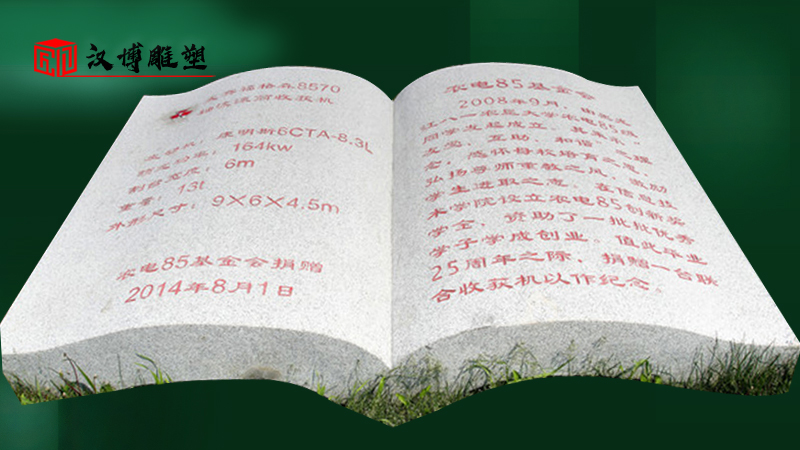 汉博雕塑
8570
收获机
发动机：康明斯6CTA-8.3L
额定功率：164kw
割台宽度：6m
重量：13t
外形尺寸：9×6×4.5m
农电85基金会捐赠
2014年8月1日
农电85基金会
2008年9月，由黑龙
江八一农垦大学农电85级
同学发起成立，其秉承“
友爱、互助、和谐”之理
念，感怀母校培育之恩，
弘扬尊师重教之风，激励
学生进取之志，在信息技
术学院设立农电85创新奖
学金，资助了一批批优秀
学子学成创业。值此毕业
25周年之际，捐赠一台联
合收获机以作纪念。